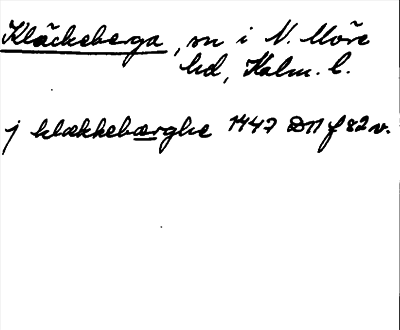 Kläckeberga, sn i N. Möre
hd, Kalm. l.
j klækkebærghe 1447 D11 f 82 v.